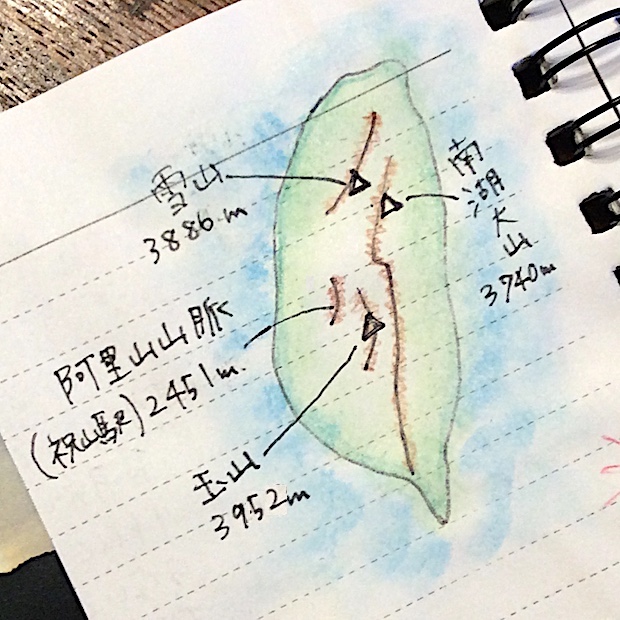 雪山
3886m
南湖大山
3740m
阿里山山脈
(祝山駅)2451m
玉山
3952m